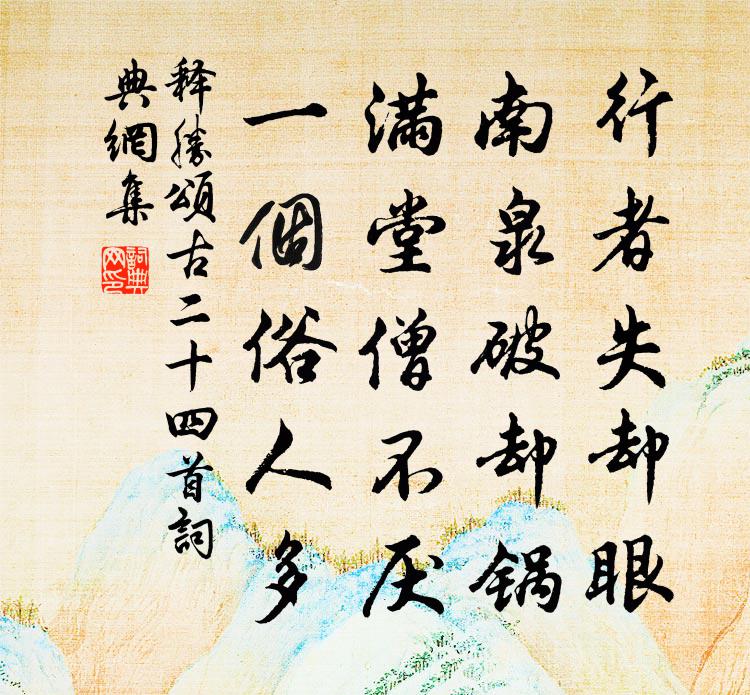 行者失却眼
南泉破却锅
满堂僧不厌
一個俗人多
释胜頌古二十四首詞
典網集
詞典
网印